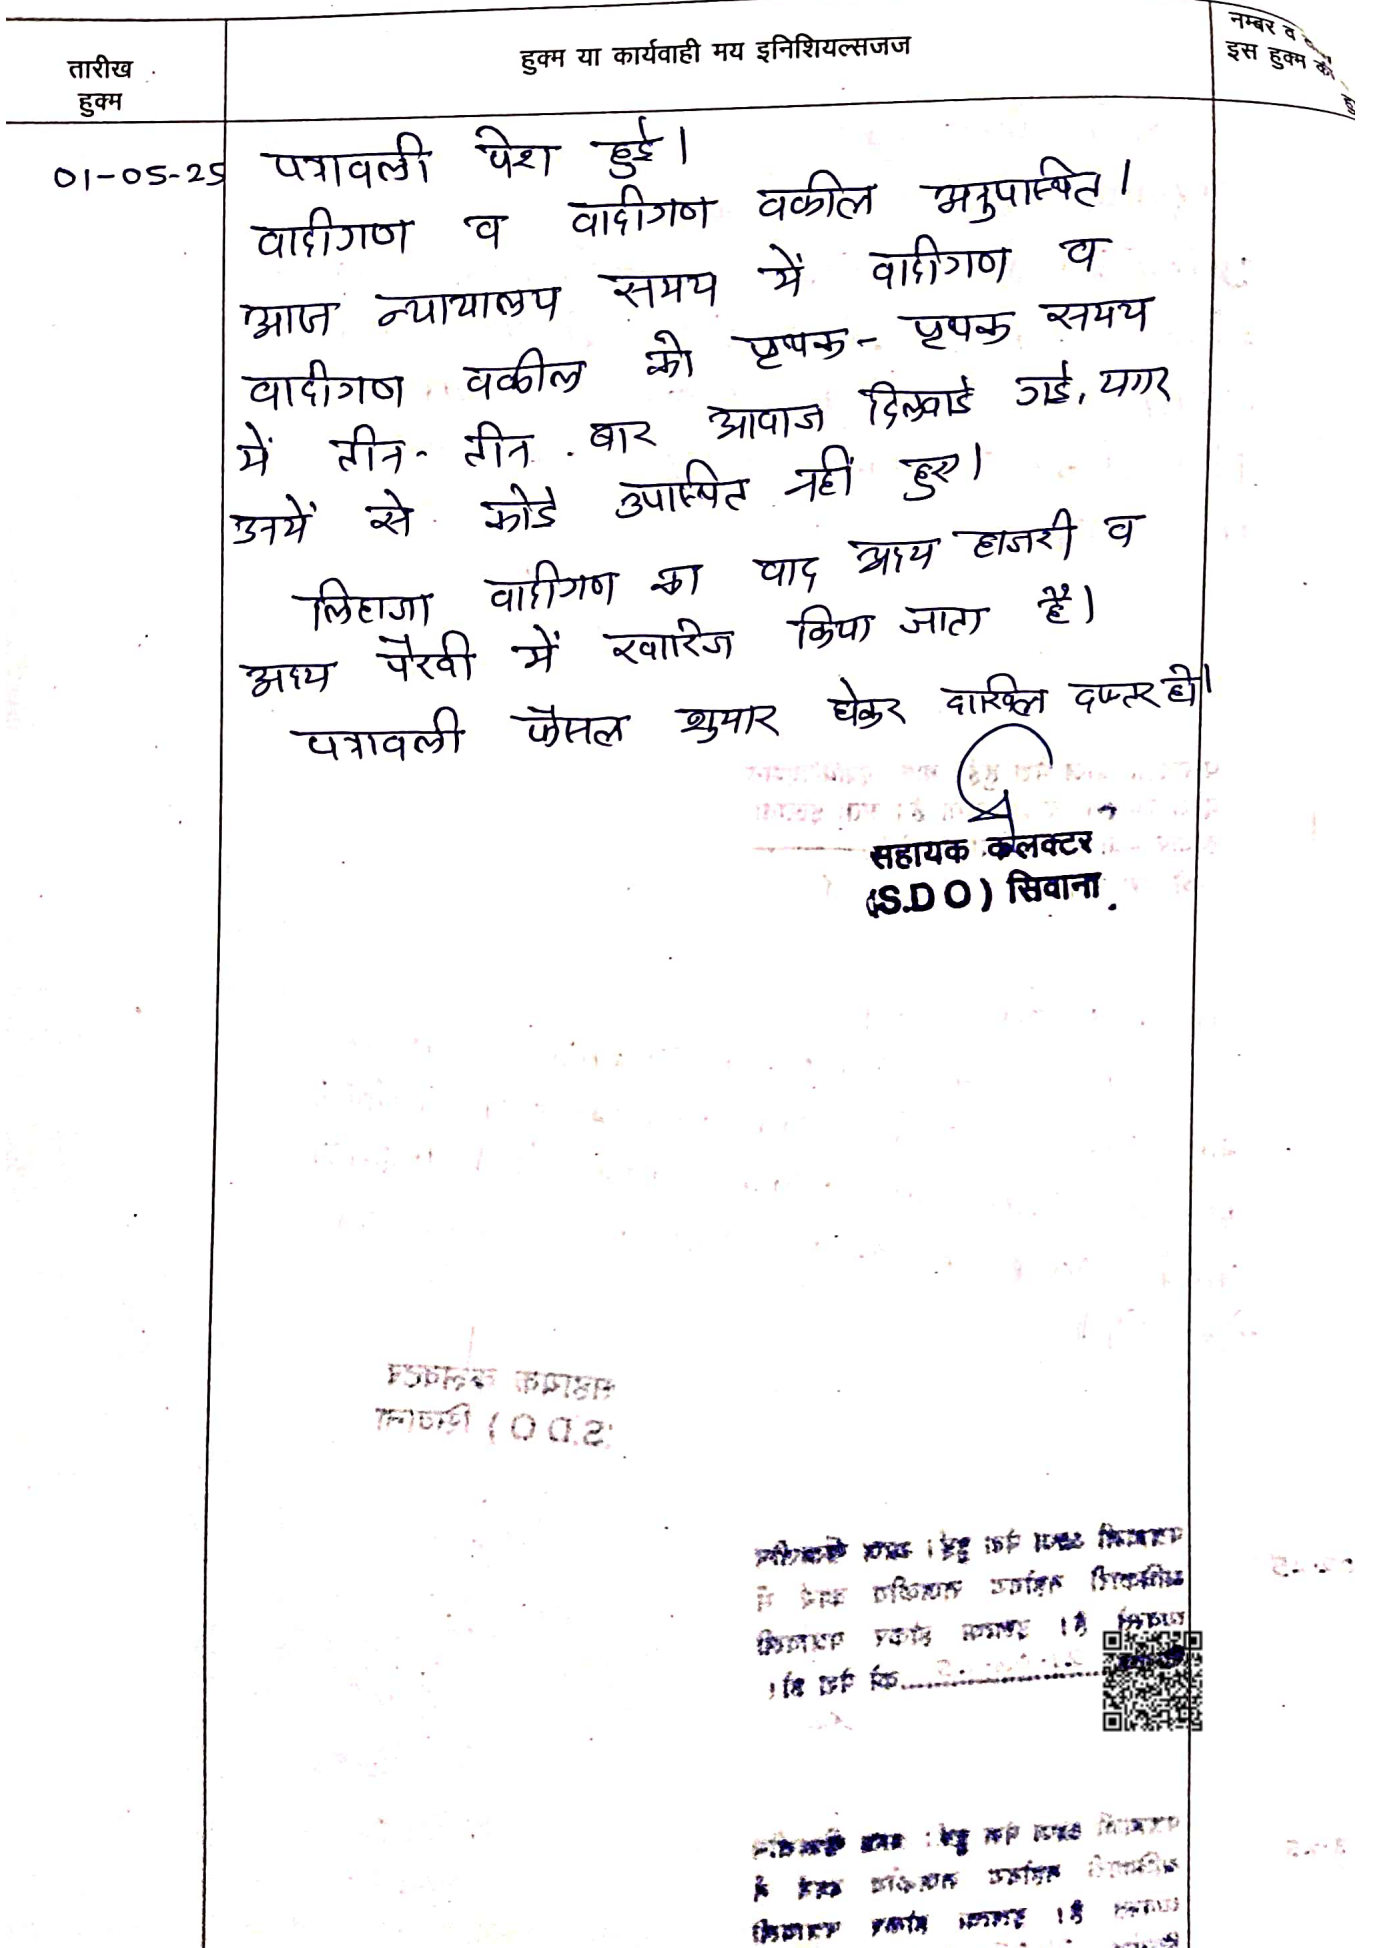 तारीख
हुक्म
हुक्म या कार्यवाही मय इनिशियल्सजज
नम्बर व
इस हुक्म की
01-05-25
पत्रावली पेश हुई।
वादीगण व वादीगण वकील अनुपस्थित।
आज न्यायालय समय में वादीगण व
वादीगण वकील को पृथक- पृथक समय
में तीन- तीन बार आवाज दिलवाई गई, मगर
उनमें से कोई उपस्थित नहीं हुए।
लिहाजा वादीगण का वाद अदम हाजरी व
अदम पैरवी में खारिज किया जाता है।
पत्रावली फैसल शुमार होकर दाखिल दफ्तर हो।
सहायक कलक्टर
(S.D O) सिवाना